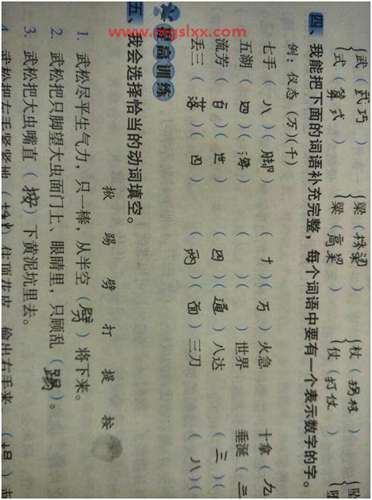 武(武巧) 梁(桥梁) 杖(拐杖) 坠
式(算式) 粱(高粱) 仗(打仗)
四、我能把下面的词语补充完整,每个词语中要有一个表示数字的字。
例:仪态(万)(千)
七手(八)(脚) (十)(万)火急 十拿(九
五湖(四)(海) ( )( )世界 垂涎(三
流芳(百)(世) (四)(通)八达 (三)(
丢三(落)(四) (两)(面)三刀 (八)(
提高训练
五、我会选择恰当的动词填空。
揪 踢 劈 打 提 按
1. 武松尽平生气力,只一棒,从半空(劈)将下来。
2. 武松把只脚望大虫面门上、眼睛里,只顾乱(踢)。
3. 武松把大虫嘴直(按)下黄泥坑里去。
4. 武松把左手紧紧地(揪)住顶花皮,偷出右手来(提)